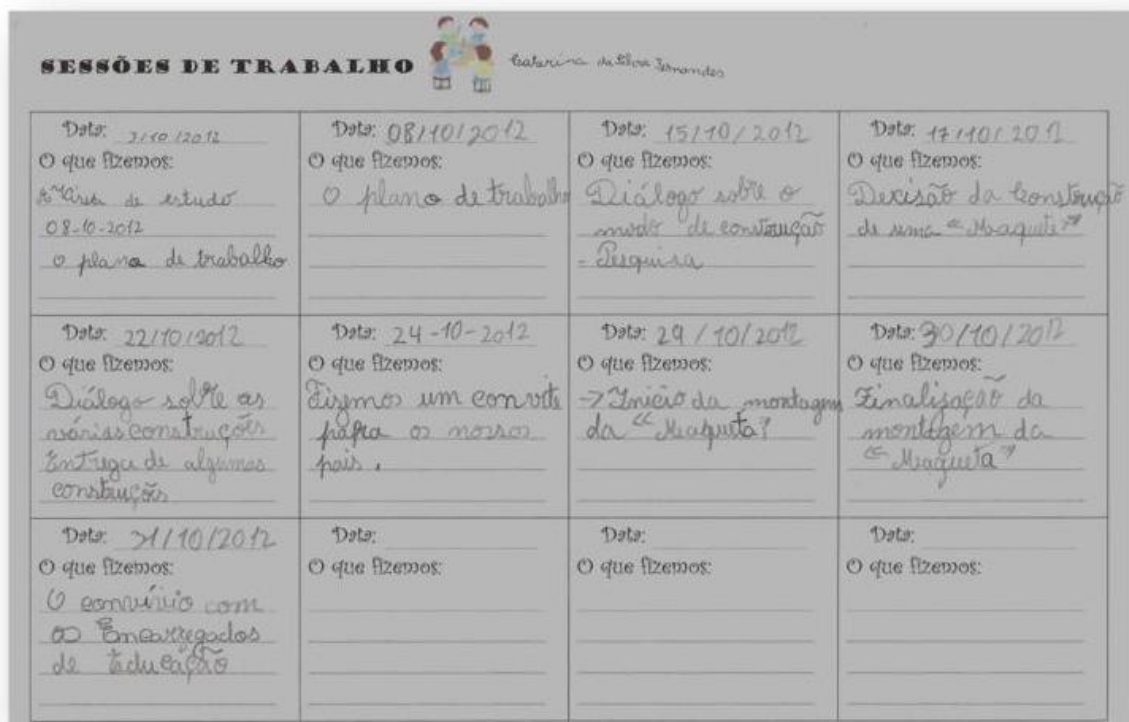 SESSÕES DE TRABALHO
Catarina da Silva Fernandes
Data: 3/10/2012
O que fizemos:
de estudo
08-10-2012
o plano de trabalho
Data: 08/10/2012
O que fizemos:
O plano de trabalho
Data: 15/10/2012
O que fizemos:
Diálogo sobre o
modo de construção
- Pesquisa
Data: 17/10/2012
O que fizemos:
Decisão da Construção
de uma "Maquete"
Data: 22/10/2012
O que fizemos:
Diálogo sobre as
várias construções
Entrega de algumas
construções
Data: 24-10-2012
O que fizemos:
Fizemos um convite
papra os nossos
pais.
Data: 29/10/2012
O que fizemos:
-> Início da montagem
da "Maqueta"
Data: 30/10/2012
O que fizemos:
Finalisação da
montagem da
"Maqueta"
Data: 31/10/2012
O que fizemos:
O convívio com
os Encarregados
de Educação
Data:
O que fizemos:
Data:
O que fizemos:
Data:
O que fizemos: